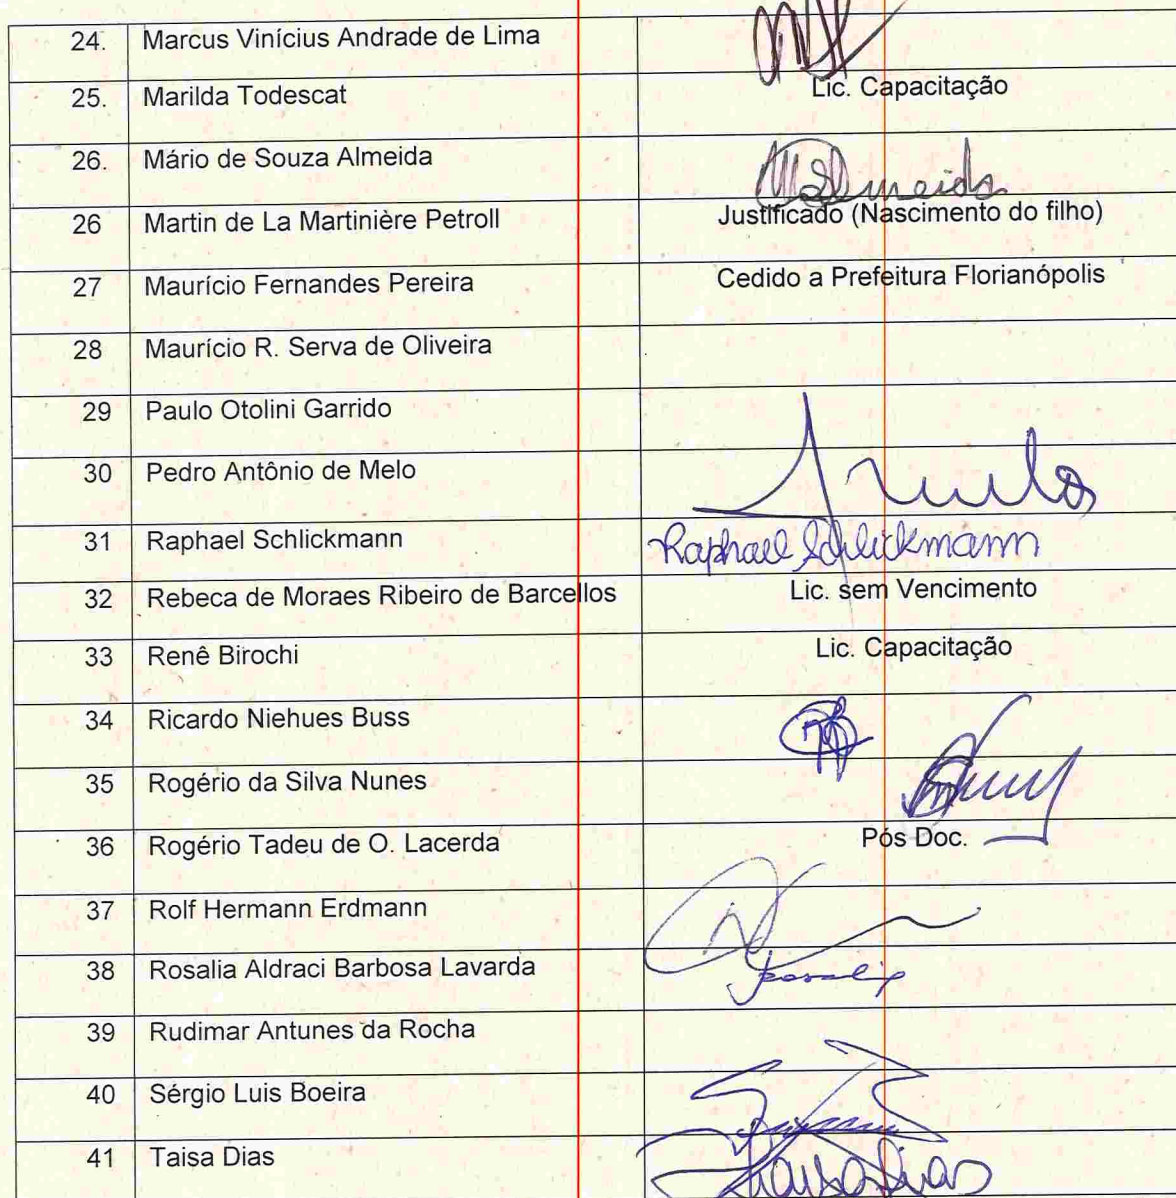 24. Marcus Vinícius Andrade de Lima
25. Marilda Todescat Lic. Capacitação
26. Mário de Souza Almeida MSAlmeida
26 Martin de La Martinière Petroll Justificado (Nascimento do filho)
27 Maurício Fernandes Pereira Cedido a Prefeitura Florianópolis
28 Maurício R. Serva de Oliveira
29 Paulo Otolini Garrido
30 Pedro Antônio de Melo
31 Raphael Schlickmann Raphael Schlickmann
32 Rebeca de Moraes Ribeiro de Barcellos Lic. sem Vencimento
33 Renê Birochi Lic. Capacitação
34 Ricardo Niehues Buss
35 Rogério da Silva Nunes
36 Rogério Tadeu de O. Lacerda Pós Doc.
37 Rolf Hermann Erdmann
38 Rosalia Aldraci Barbosa Lavarda Rosalia
39 Rudimar Antunes da Rocha
40 Sérgio Luis Boeira
41 Taisa Dias Taisa Dias